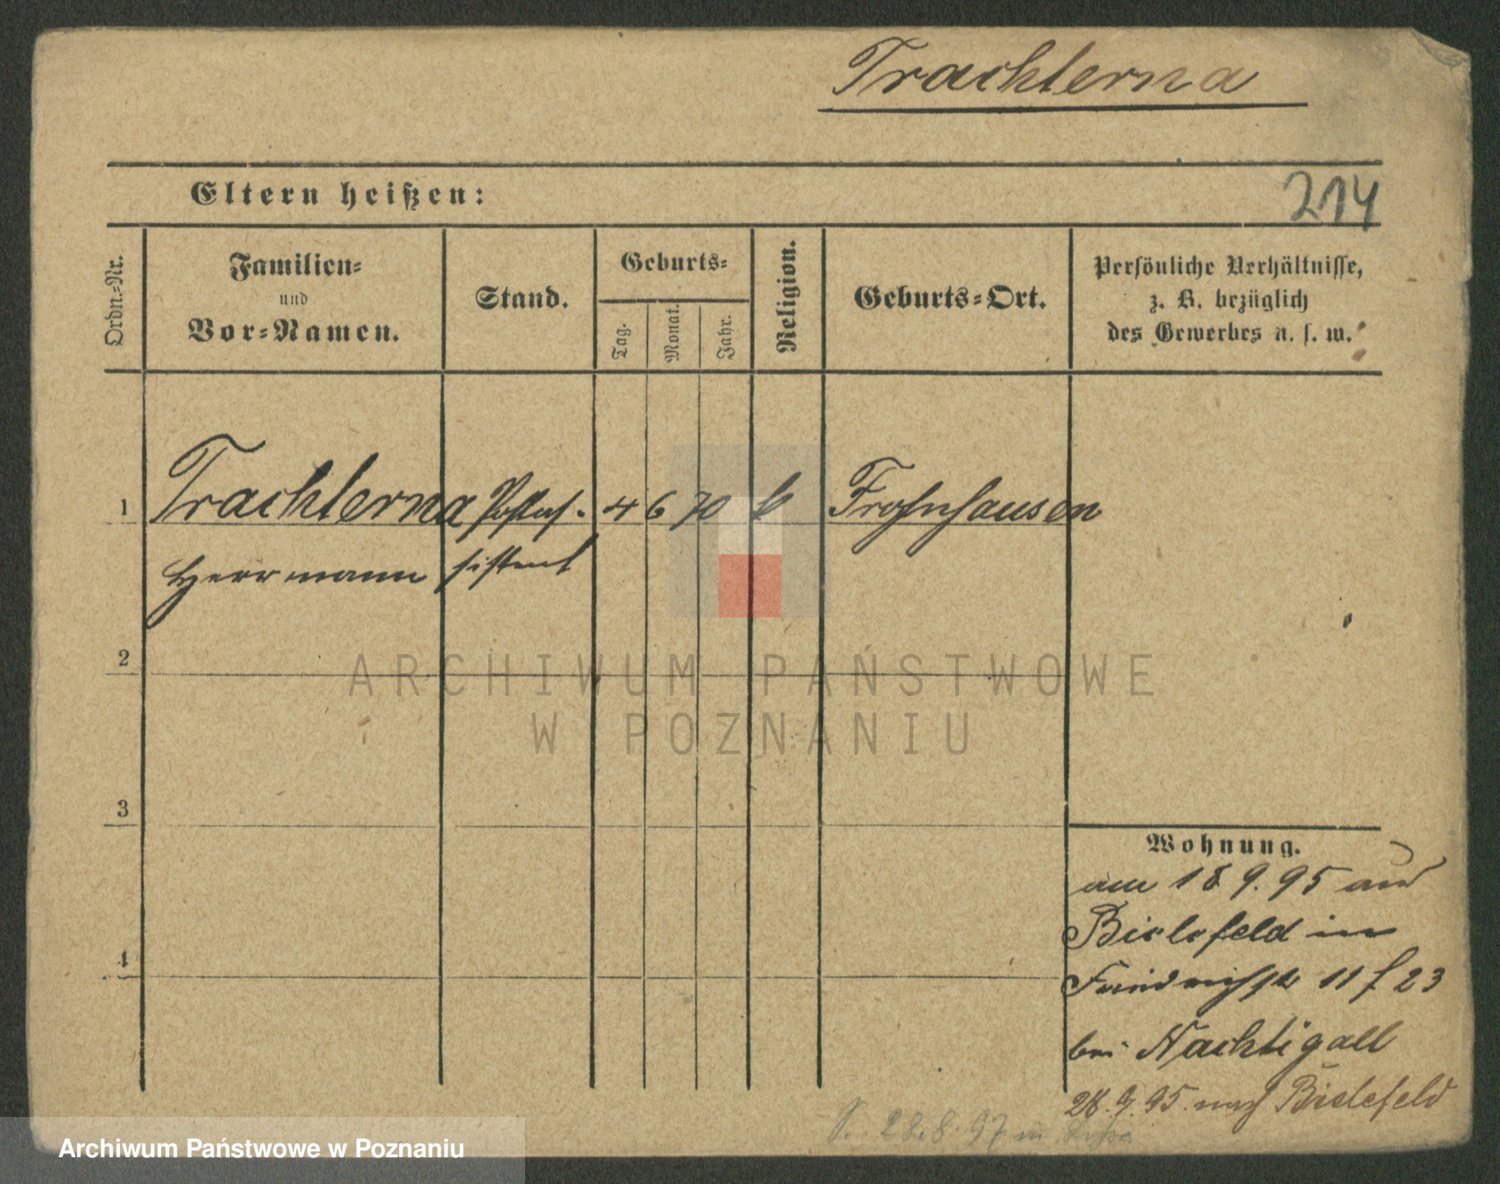 Trachterna
Eltern heißen:
214
Ordn.-Nr.
Familien-
und
Vor-Namen.
Stand.
Geburts-
Tag.
Monat.
Jahr.
Religion.
Geburts-Ort.
Persönliche Verhältnisse,
z. B. bezüglich
des Gewerbes u. s. w.
1 Trachterna Postas- 4 6 70 k Frohnhausen
Herrmann sistent
2
ARCHIWUM PAŃSTWOWE
W POZNANIU
3
Wohnung.
am 18 9. 95 aus
Bielefeld in
4
Friedrichstr 11 f 23
bei Nachtigall
28. 9. 95. nach Bielefeld
28.8.97 in
Archiwum Państwowe w Poznaniu